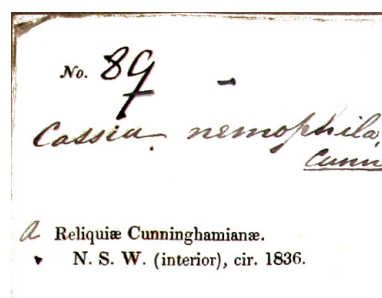 No. 89 -
Cassia nemophila,
Cunn
a Reliquiæ Cunninghamianæ.
N. S. W. (interior), cir. 1836.